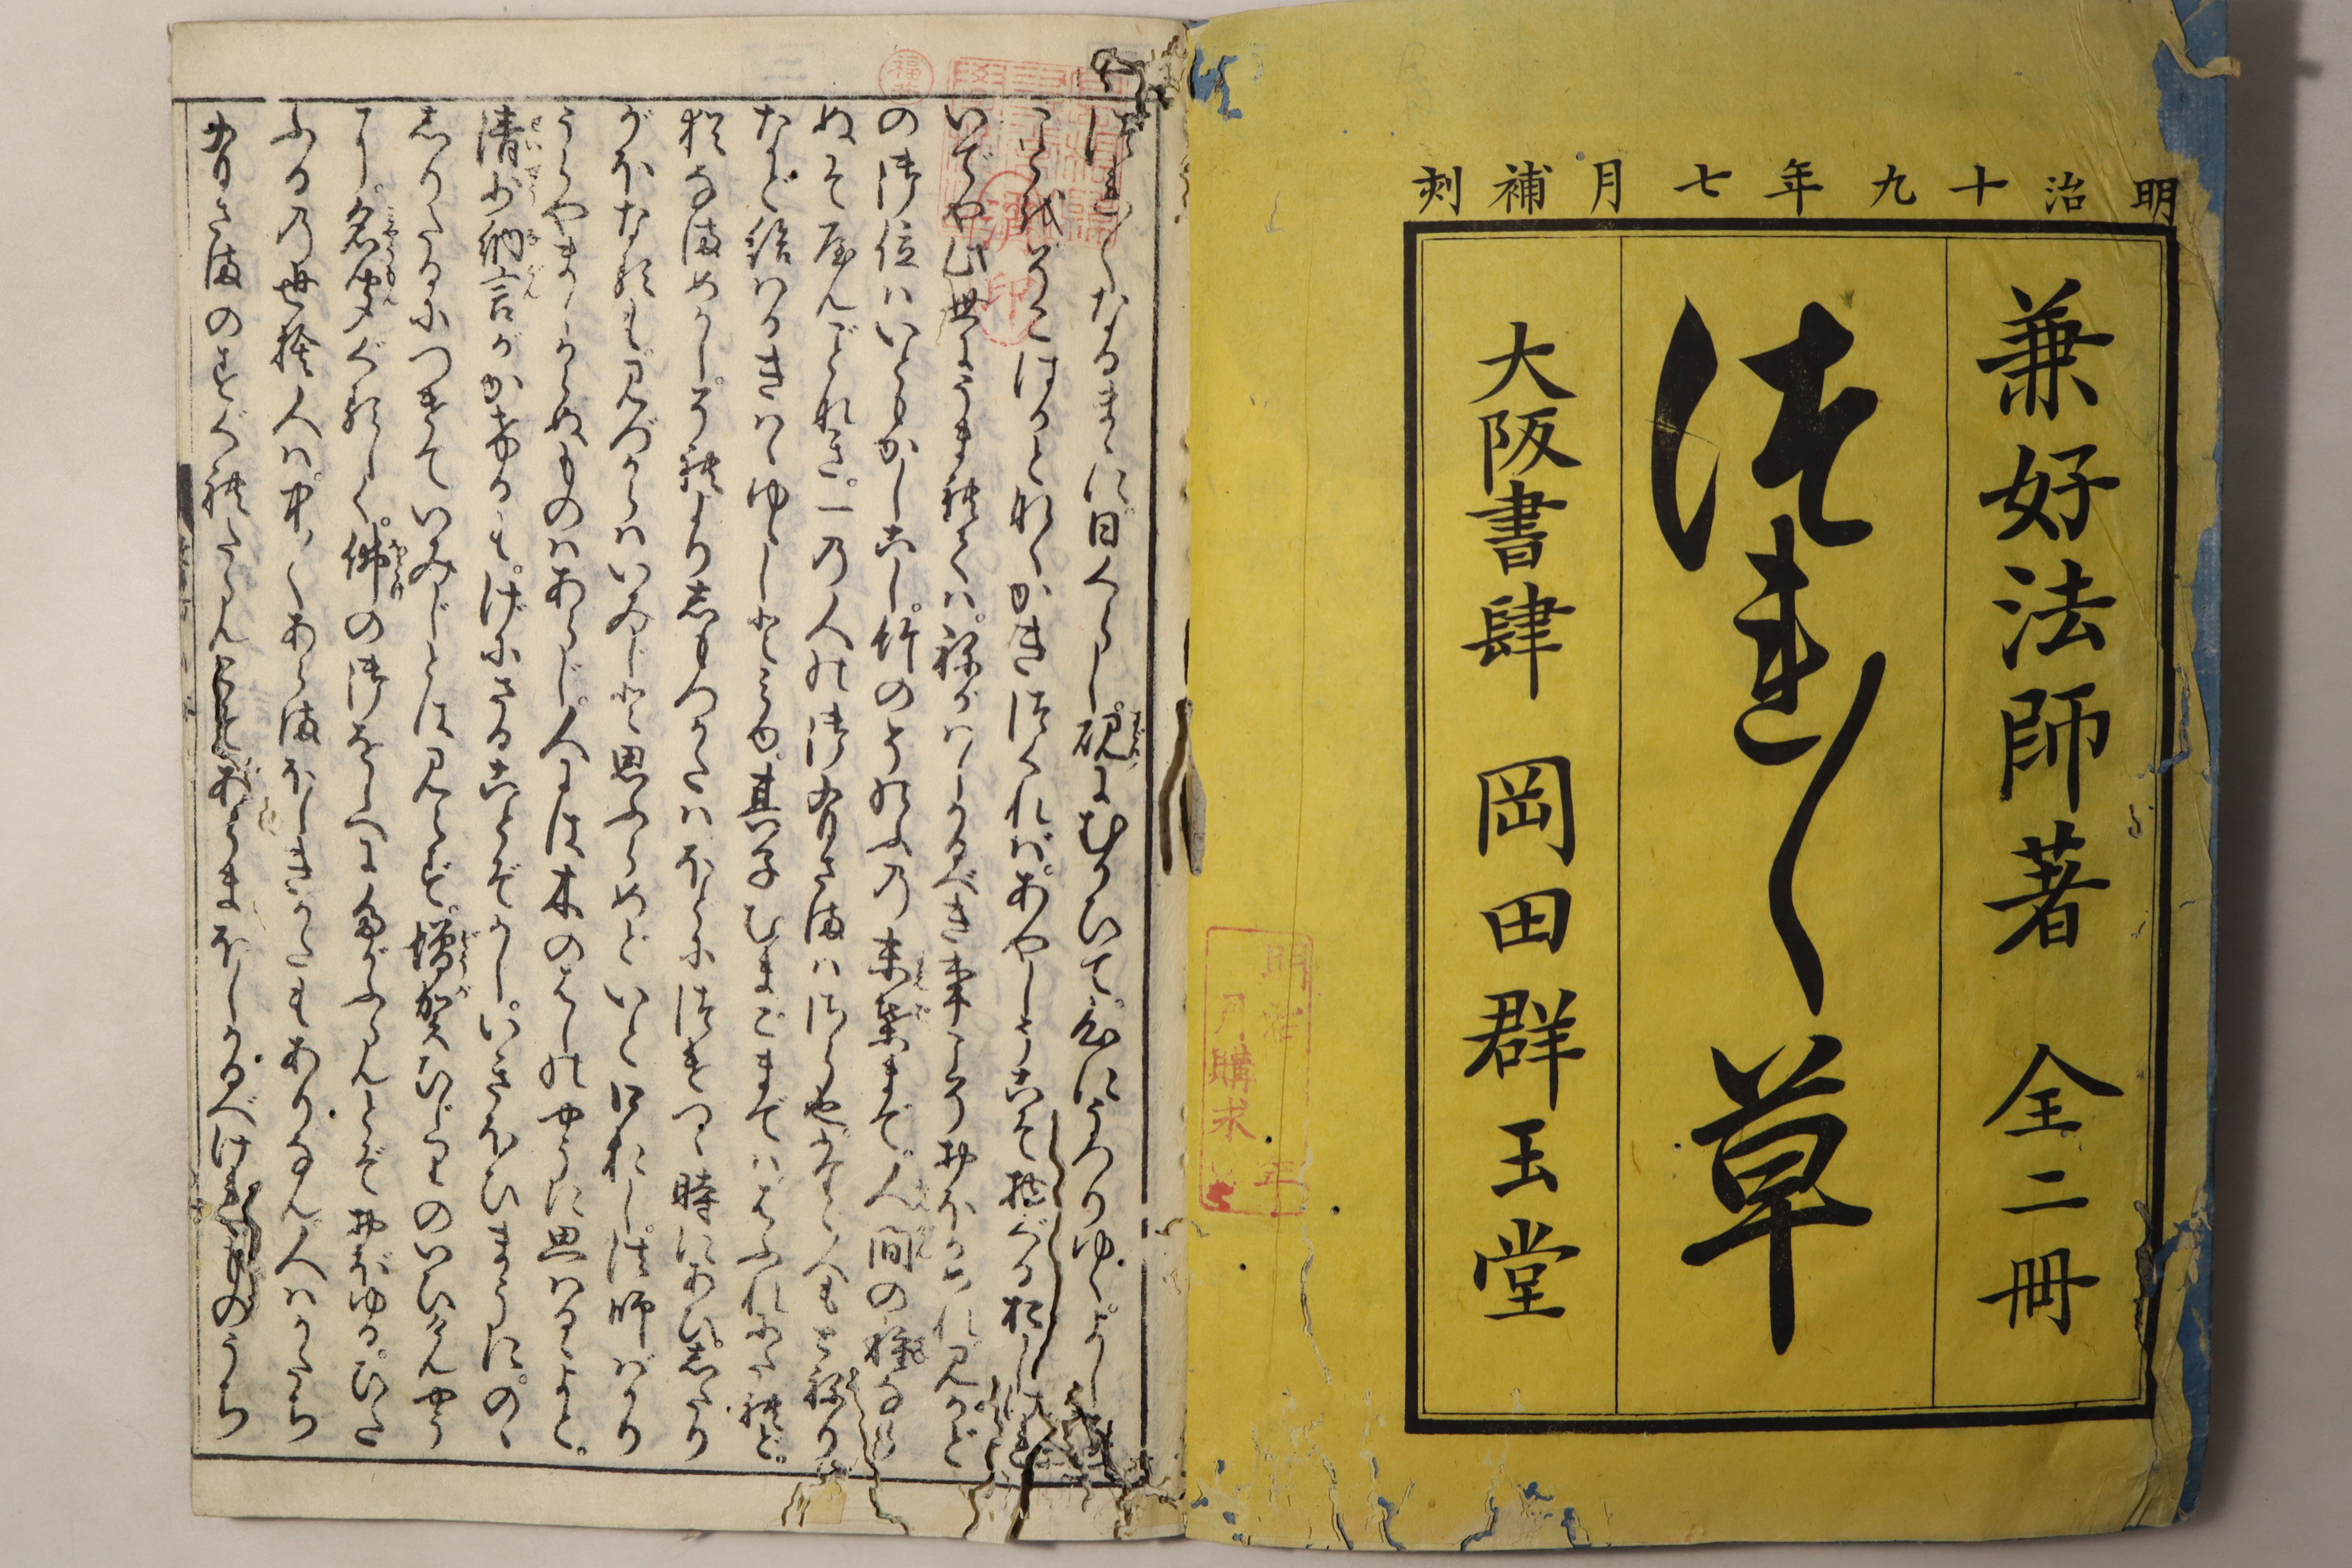 明治十九年七月補刻
兼好法師著 全二冊
つれ〱草
大阪書肆 岡田群玉堂
明治 年
月購求
つれ〱なるまゝに。日くらし。硯にむかひて。心にうつりゆくよしなし
ことをそこはかとなくかきつくれば。あやしうこそ物ぐるおしけれ
いでや此世にうまれては。ねがはしかるべき事こそおほかめれ見かど
の御位はいともかしこし。竹のそのふの末葉まで人間の種なら
ぬぞやんごとなき。一の人の御有さまはさら也たゞ人もとねり
など給はるきはゝゆゝしと見ゆ。其子むまごまでははふれにたれど。
猶なまめかし。それより志もつかたはほどにつけつゝ時にあひ。志たり
がほなるも。みづからはいみじと思ふらめどいと口おし。法師ばかり
うらやましからぬものはあらじ。人には木のはしのやうに思はるゝよと。
清少納言がかけるも。げにさることぞかし。いきほひまうに。のゝ
志りたるにつけていみじとは見えず。増賀ひじりのいひけんやう
に。名聞ぐるしく。佛の御をしへにたがふらんとぞおぼゆる。ひた
ふるの世捨人は。中〱あらまほしきかたもありなん。人はかたち
有さまのすぐれたらんこそあらまほしかるべけれものうち